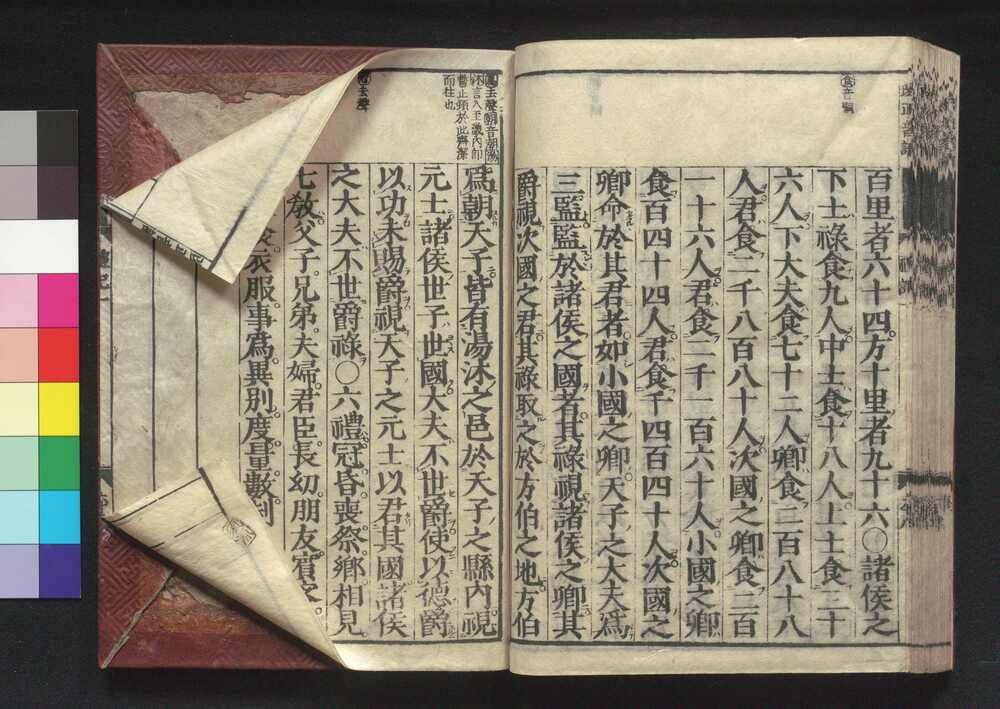 百里者六十四方十里者九十六〇諸侯之
下士祿食九人中士食十八人上士食三十
六人下大夫食七十二人卿食二百八十八
人君食二千八百八十人次國之卿食二百
一十六人君食二千一百六十人小國之卿
食百四十四人君食千四百四十人次國之
卿命於其君者如小國之卿天子之大夫爲
三監監於諸侯之國者其祿視諸侯之卿其
爵視次國之君其祿取之於方伯之地方伯
爲朝天子皆有湯沐之邑於天子之縣內視
元士諸侯世子世國大夫不世爵使以德爵
以功未賜爵視天子之元士以君其國諸侯
之大夫不世爵祿〇六禮冠昏喪祭鄉相見
七敎父子兄弟夫婦君臣長幼朋友賓客
衣服事爲異別度量數制